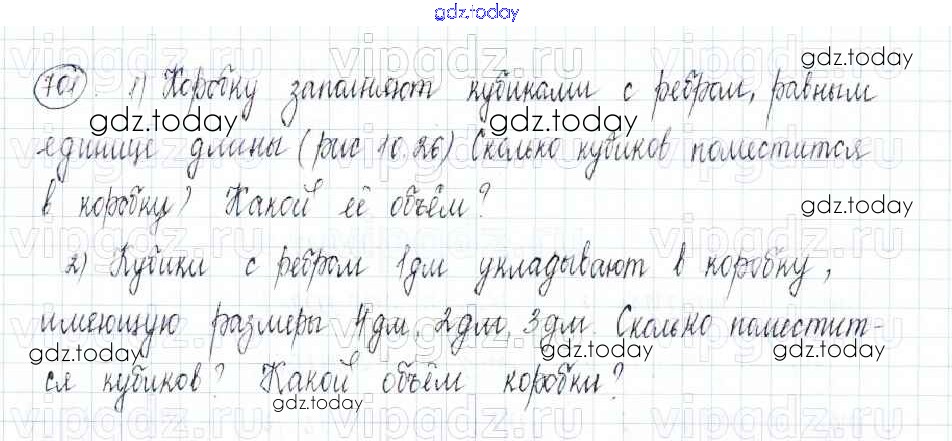 gdz.today
701. 1) Коробку заполняют кубиками с ребром, равным
единице длины (рис 10.26) Сколько кубиков поместится
в коробку? Какой её объём?
2) Кубики с ребром 1дм укладывают в коробку,
имеющую размеры 4дм, 2дм, 3дм. Сколько поместит-
ся кубиков? Какой объём коробки?
gdz.today
gdz.today
gdz.today
gdz.today
gdz.today
gdz.today
gdz.today
vipgdz.ru